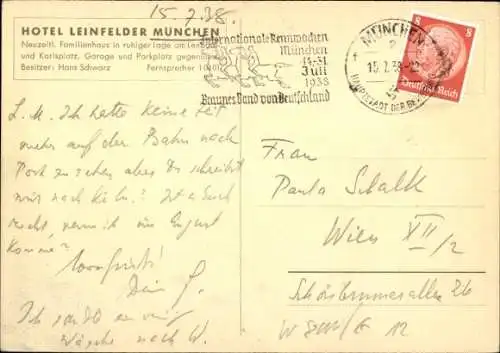 15.7.38.
HOTEL LEINFELDER MÜNCHEN
Neuzeitl. Familienhaus in ruhiger Lage am Lenbach-
und Karlsplatz, Garage und Parkplatz gegenüber
Besitzer: Hans Schwarz Fernsprecher
Internationale Rennwochen
München
Juli
1938
Braunes Band von Deutschland
MÜNCHEN
2
HAUPTSTADT DER
8 8
Deutsches Reich
L. M. Ich hatte keine Zeit
mehr auf der Bahn nach
Post zu sehen aber Du schreibst
mir nach Köln? Ist es Euch
recht, wenn ich im August
komme?
Dein
Ich
Wäsche nach W.
Frau
Paula Stalk
Wien XII/2
Schönbrunnerallee 26
12